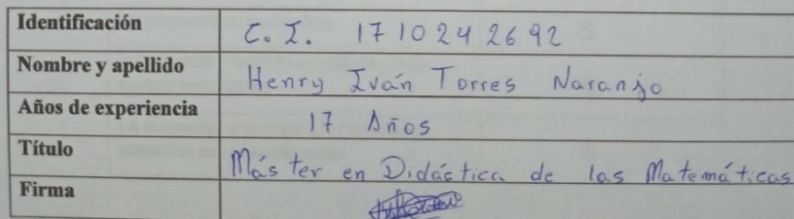 Identificación C. I. 1710242692
Nombre y apellido Henry Iván Torres Naranjo
Años de experiencia 17 Años
Título Máster en Didáctica de las Matemáticas
Firma